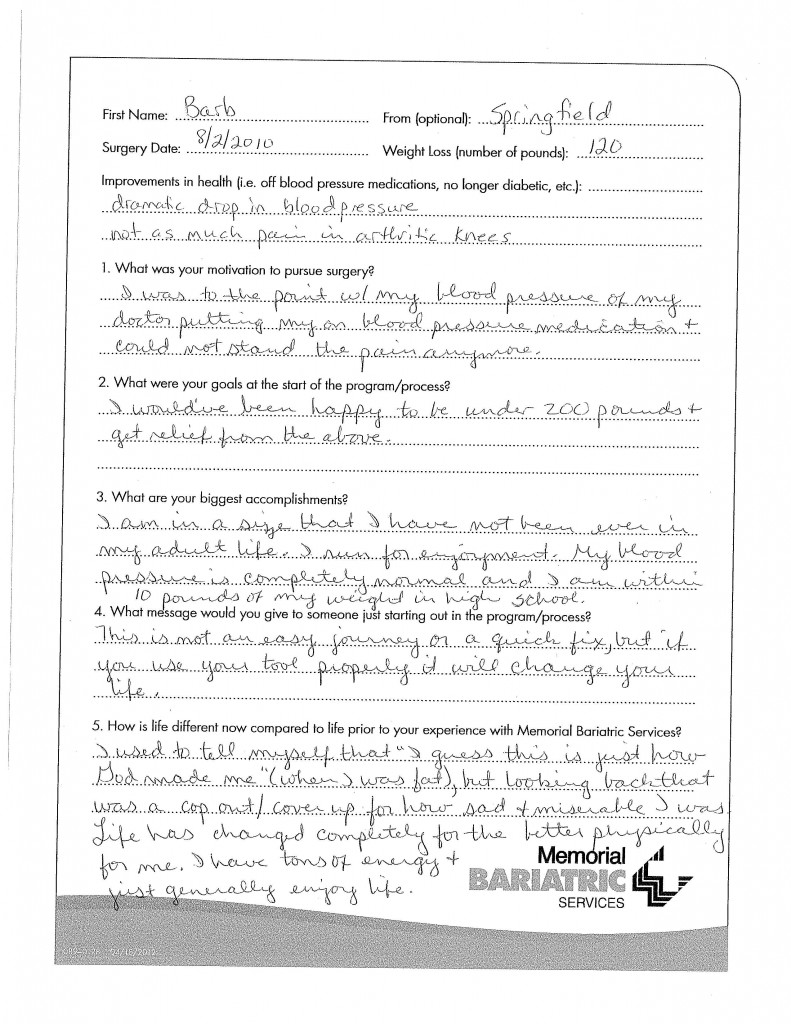 First Name: Barb From (optional): Springfield
Surgery Date: 8/2/2010 Weight Loss (number of pounds): 120
Improvements in health (i.e. off blood pressure medications, no longer diabetic, etc.):
dramatic drop in blood pressure
not as much pain in arthritic knees
1. What was your motivation to pursue surgery?
I was to the point w/ my blood pressure of my
doctor putting my on blood pressure medication +
could not stand the pain anymore.
2. What were your goals at the start of the program/process?
I would've been happy to be under 200 pounds +
get relief from the above.
3. What are your biggest accomplishments?
I am in a size that I have not been ever in
my adult life. I run for enjoyment. My blood
pressure is completely normal and I am within
10 pounds of my weight in high school.
4. What message would you give to someone just starting out in the program/process?
This is not an easy journey or a quick fix, but if
you use your tool properly it will change your
life.
5. How is life different now compared to life prior to your experience with Memorial Bariatric Services?
I used to tell myself that "I guess this is just how
God made me" (when I was fat), but looking back that
was a cop out/cover up for how sad + miserable I was
Life has changed completely for the better physically
for me. I have tons of energy +
just generally enjoy life.
Memorial
BARIATRIC
SERVICES
04/18/2012